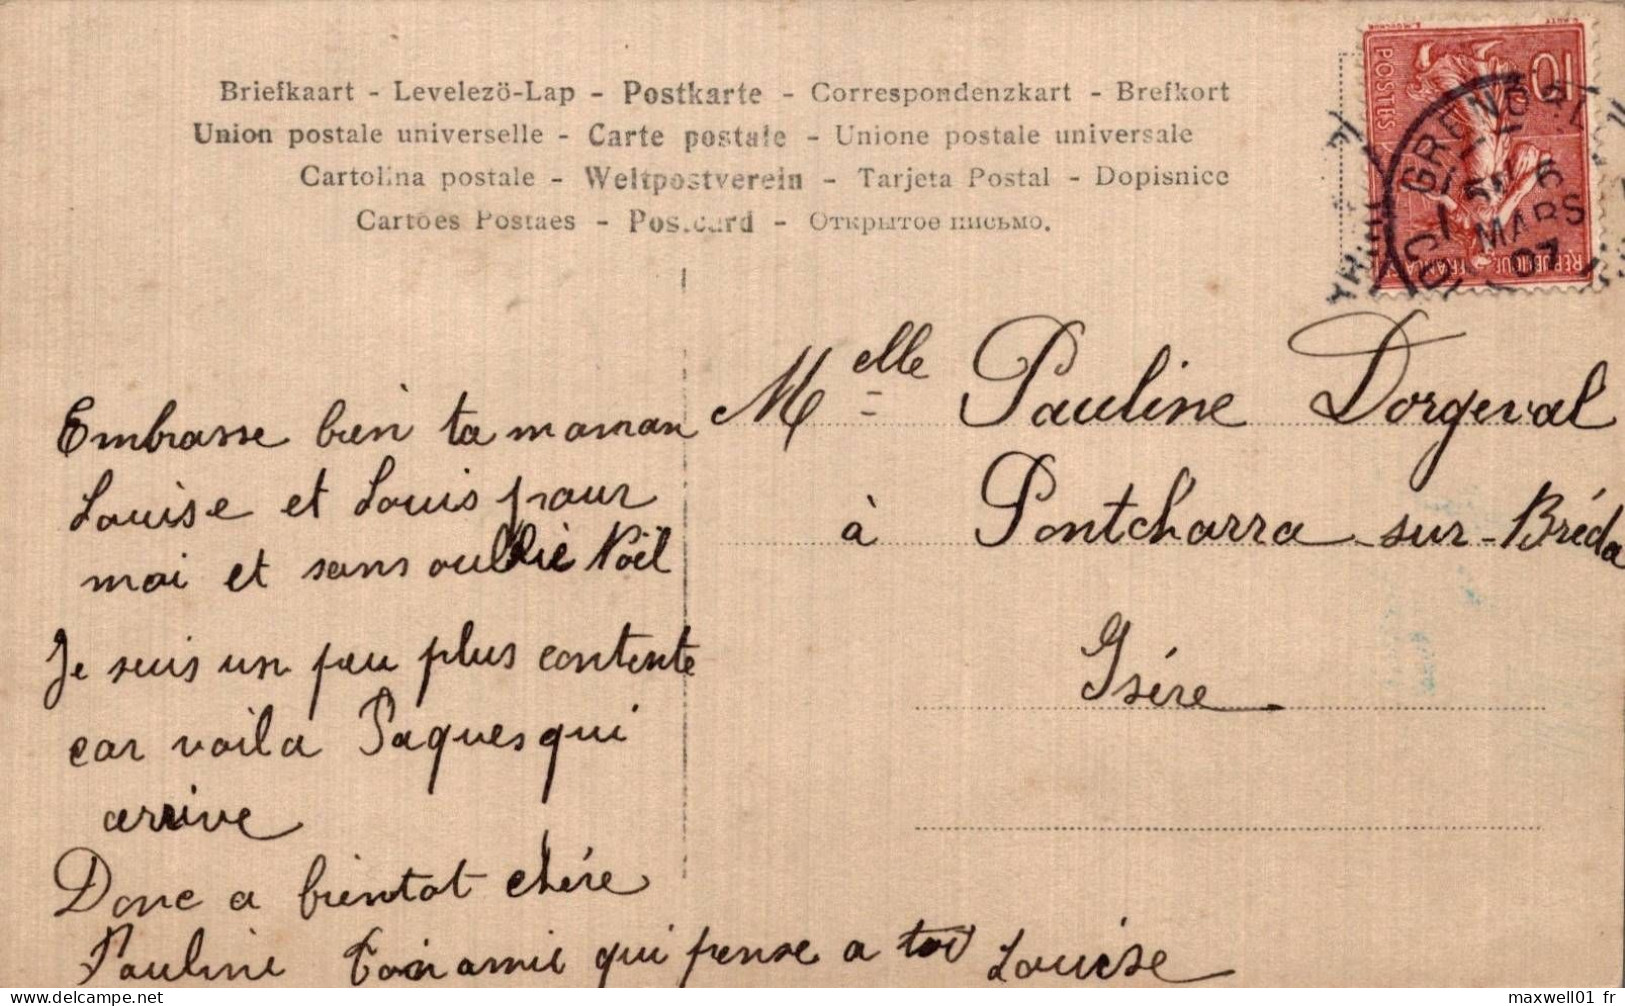 Briefkaart - Levelezö-Lap - Postkarte - Correspondenzkart - Brefkort
Union postale universelle - Carte postale - Unione postale universale
Cartolina postale - Weltpostverein - Tarjeta Postal - Dopisnice
Cartoes Postaes - Pos.card - Открытое письмо.
10
POSTES
REPUBLIQUE FRANÇAISE
GRENOBLE
6
MARS
07
Melle Pauline Dorgeval
à Pontcharra-sur-Bréda
Isére
Embrasse bien ta maman
Louise et Louis pour
moi et sans oublié Noël
Je suis un peu plus contente
car voila Paques qui
arrive
Donc a bientot chére
Pauline Ton amie qui pense a toi Louise
maxwell01 fr